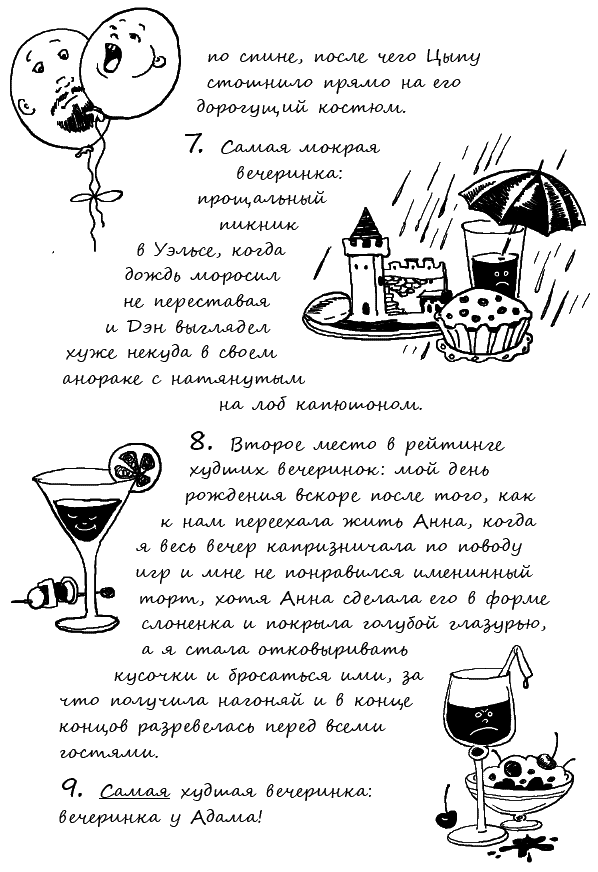 по спине, после чего Цыпу
стошнило прямо на его
дорогущий костюм.
7. Самая мокрая
вечеринка:
прощальный
пикник
в Уэльсе, когда
дождь моросил
не переставая
и Дэн выглядел
хуже некуда в своем
анораке с натянутым
на лоб капюшоном.
8. Второе место в рейтинге
худших вечеринок: мой день
рождения вскоре после того, как
к нам переехала жить Анна, когда
я весь вечер капризничала по поводу
игр и мне не понравился именинный
торт, хотя Анна сделала его в форме
слоненка и покрыла голубой глазурью,
а я стала отковыривать
кусочки и бросаться ими, за
что получила нагоняй и в конце
концов разревелась перед всеми
гостями.
9. Самая худшая вечеринка:
вечеринка у Адама!